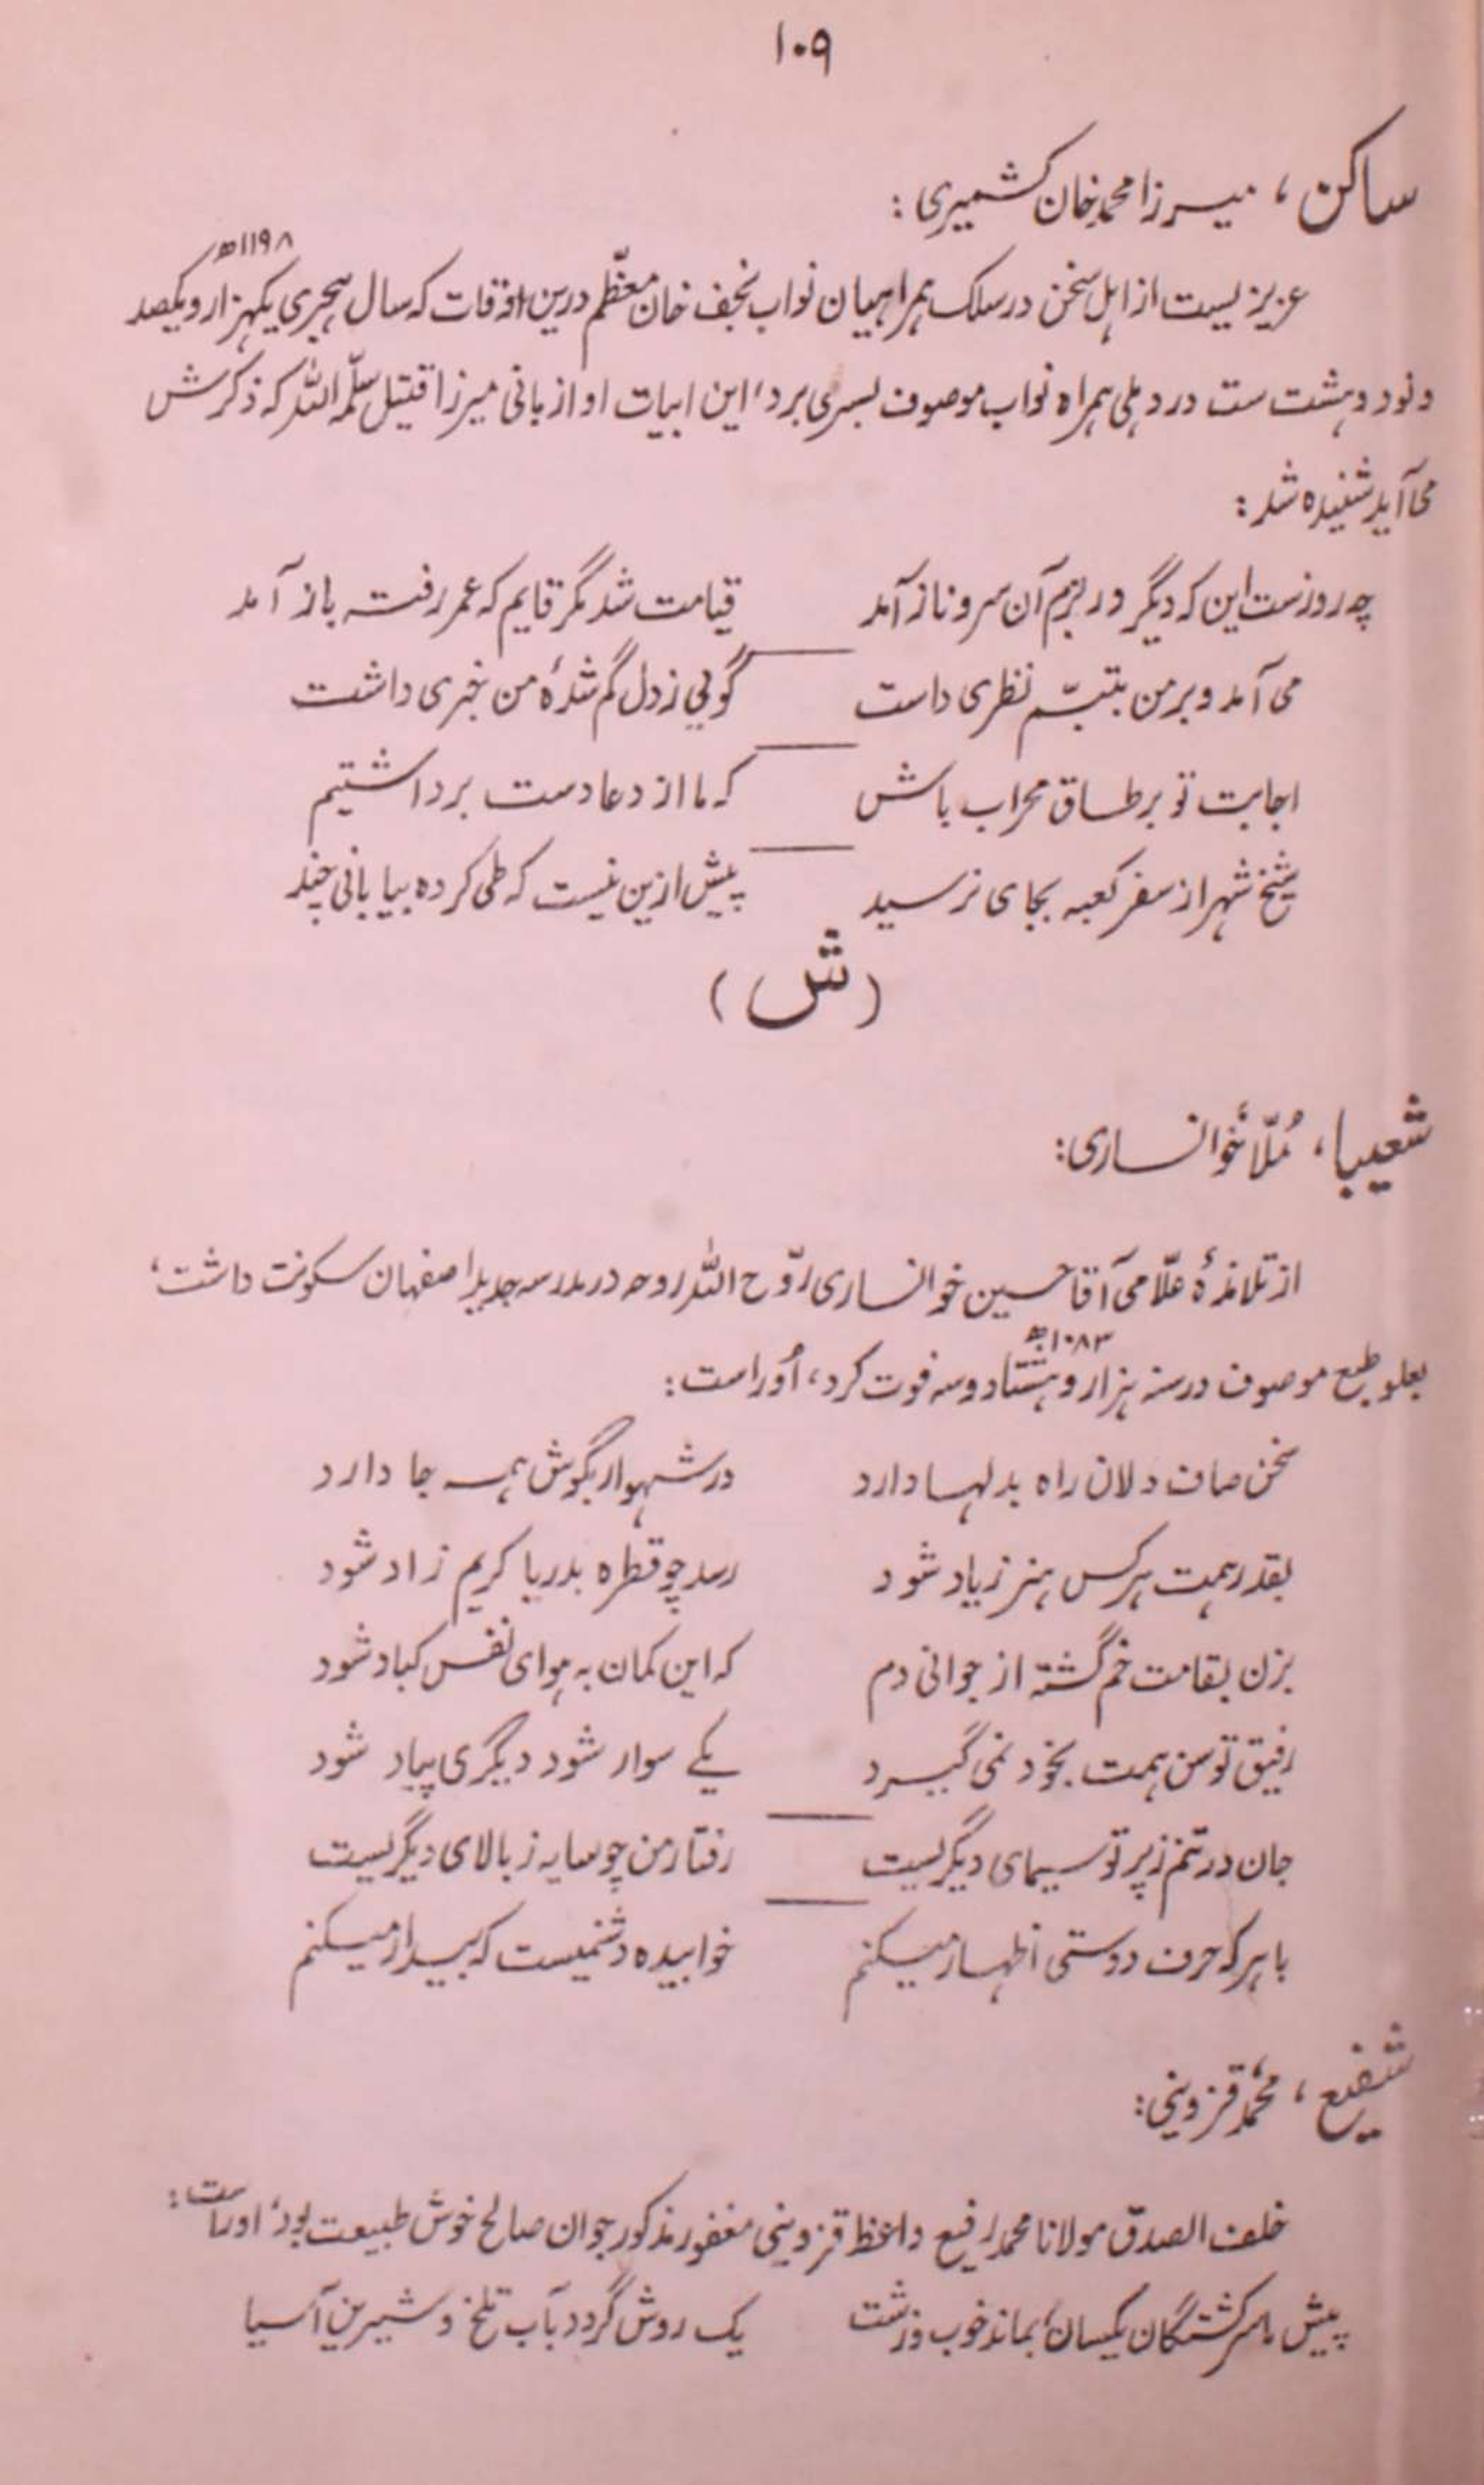 ۱۰۹
ساکن، میرزا محمد خان کشمیری:
۱۱۹۸ھ
عزیزیست از اہل سخن در سلک ہمراہیان نواب نجف خان معظّم درین اوقات کہ سال ہجری یکہزار و یکصد
و نود و ہشت ست در دہلی ہمراہ نواب موصوف بسر می برد، این ابیات او از بانی میرزا قتیل سلّمہ اللہ کہ ذکرش
می آید شنیدہ شد:
چہ روزست این کہ دیگر در بزم آن سرو ناز آمد قیامت شد مگر قایم کہ عمر رفتہ باز آمد
می آمد و بر من بتبسّم نظری داست گویی ز دل گم شدۂ من خبری داشت
اجابت تو بر طاق محراب باش کہ ما از دعا دست برداشتیم
شیخ شہر از سفر کعبہ بجای نرسید پیش ازین نیست کہ طی کردہ بیابانی چند
(ش)
شعیبا، مُلّا خوانساری:
از تلامذۂ علّامی آقا حسین خوانساری روّح اللہ روحہ در مدرسہ جدید اصفہان سکونت داشت،
۱۰۸۳ھ
بعلو طبع موصوف در سنہ ہزار و ہشتاد و سہ فوت کرد، اُوراست:
سخن صاف دلان راہ بدلہا دارد در شہوار بگوش ہمہ جا دارد
بقدر ہمت ہر کس ہنر زیاد شود رسد چو قطرہ بدریا کریم زاد شود
بزن بقامت خم گشتہ از جوانی دم کہ این کمان بہ ہوای نفس کباد شود
رفیق توسن ہمت بخود نمی گیرد یکے سوار شود دیگری پیاد شود
جان در تنم ز پرتو سیمای دیگریست رفتار من چو سایہ ز بالای دیگریست
با ہر کہ حرف دوستی اظہار میکنم خوابیدہ دشمنیست کہ بیدار میکنم
شفیع، محمّد قزوینی:
خلف الصدق مولانا محمد رفیع داعظ قزوینی مغفور مذکور جوان صالح خوش طبیعت بود، اوراست:
پیش ما سرگشتگان یکسان بماند خوب و زشت یک روش گردد بآب تلخ و شیرین آسیا